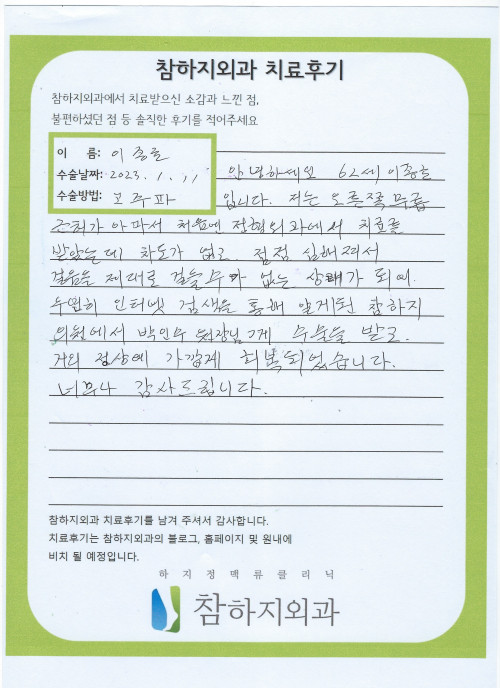 참하지외과 치료후기
참하지외과에서 치료받으신 소감과 느낀 점,
불편하셨던 점 등 솔직한 후기를 적어주세요
이 름: 이종호
수술날짜: 2023. 1. 11
수술방법: 고주파
안녕하세요 62세 이종호
입니다. 저는 오른쪽 무릎
근처가 아파서 처음엔 정형외과에서 치료를
받았는데 차도가 없고 점점 심해져서
걸음을 제대로 걸을수가 없는 상태가 되어.
우연히 인터넷 검색을 통해 알게된 참하지
의원에서 박인수 원장님께 수술을 받고.
거의 정상에 가깝게 회복되었습니다.
너무나 감사드립니다.
참하지외과 치료후기를 남겨 주셔서 감사합니다.
치료후기는 참하지외과의 블로그, 홈페이지 및 원내에
비치 될 예정입니다.
하지정맥류클리닉
참하지외과